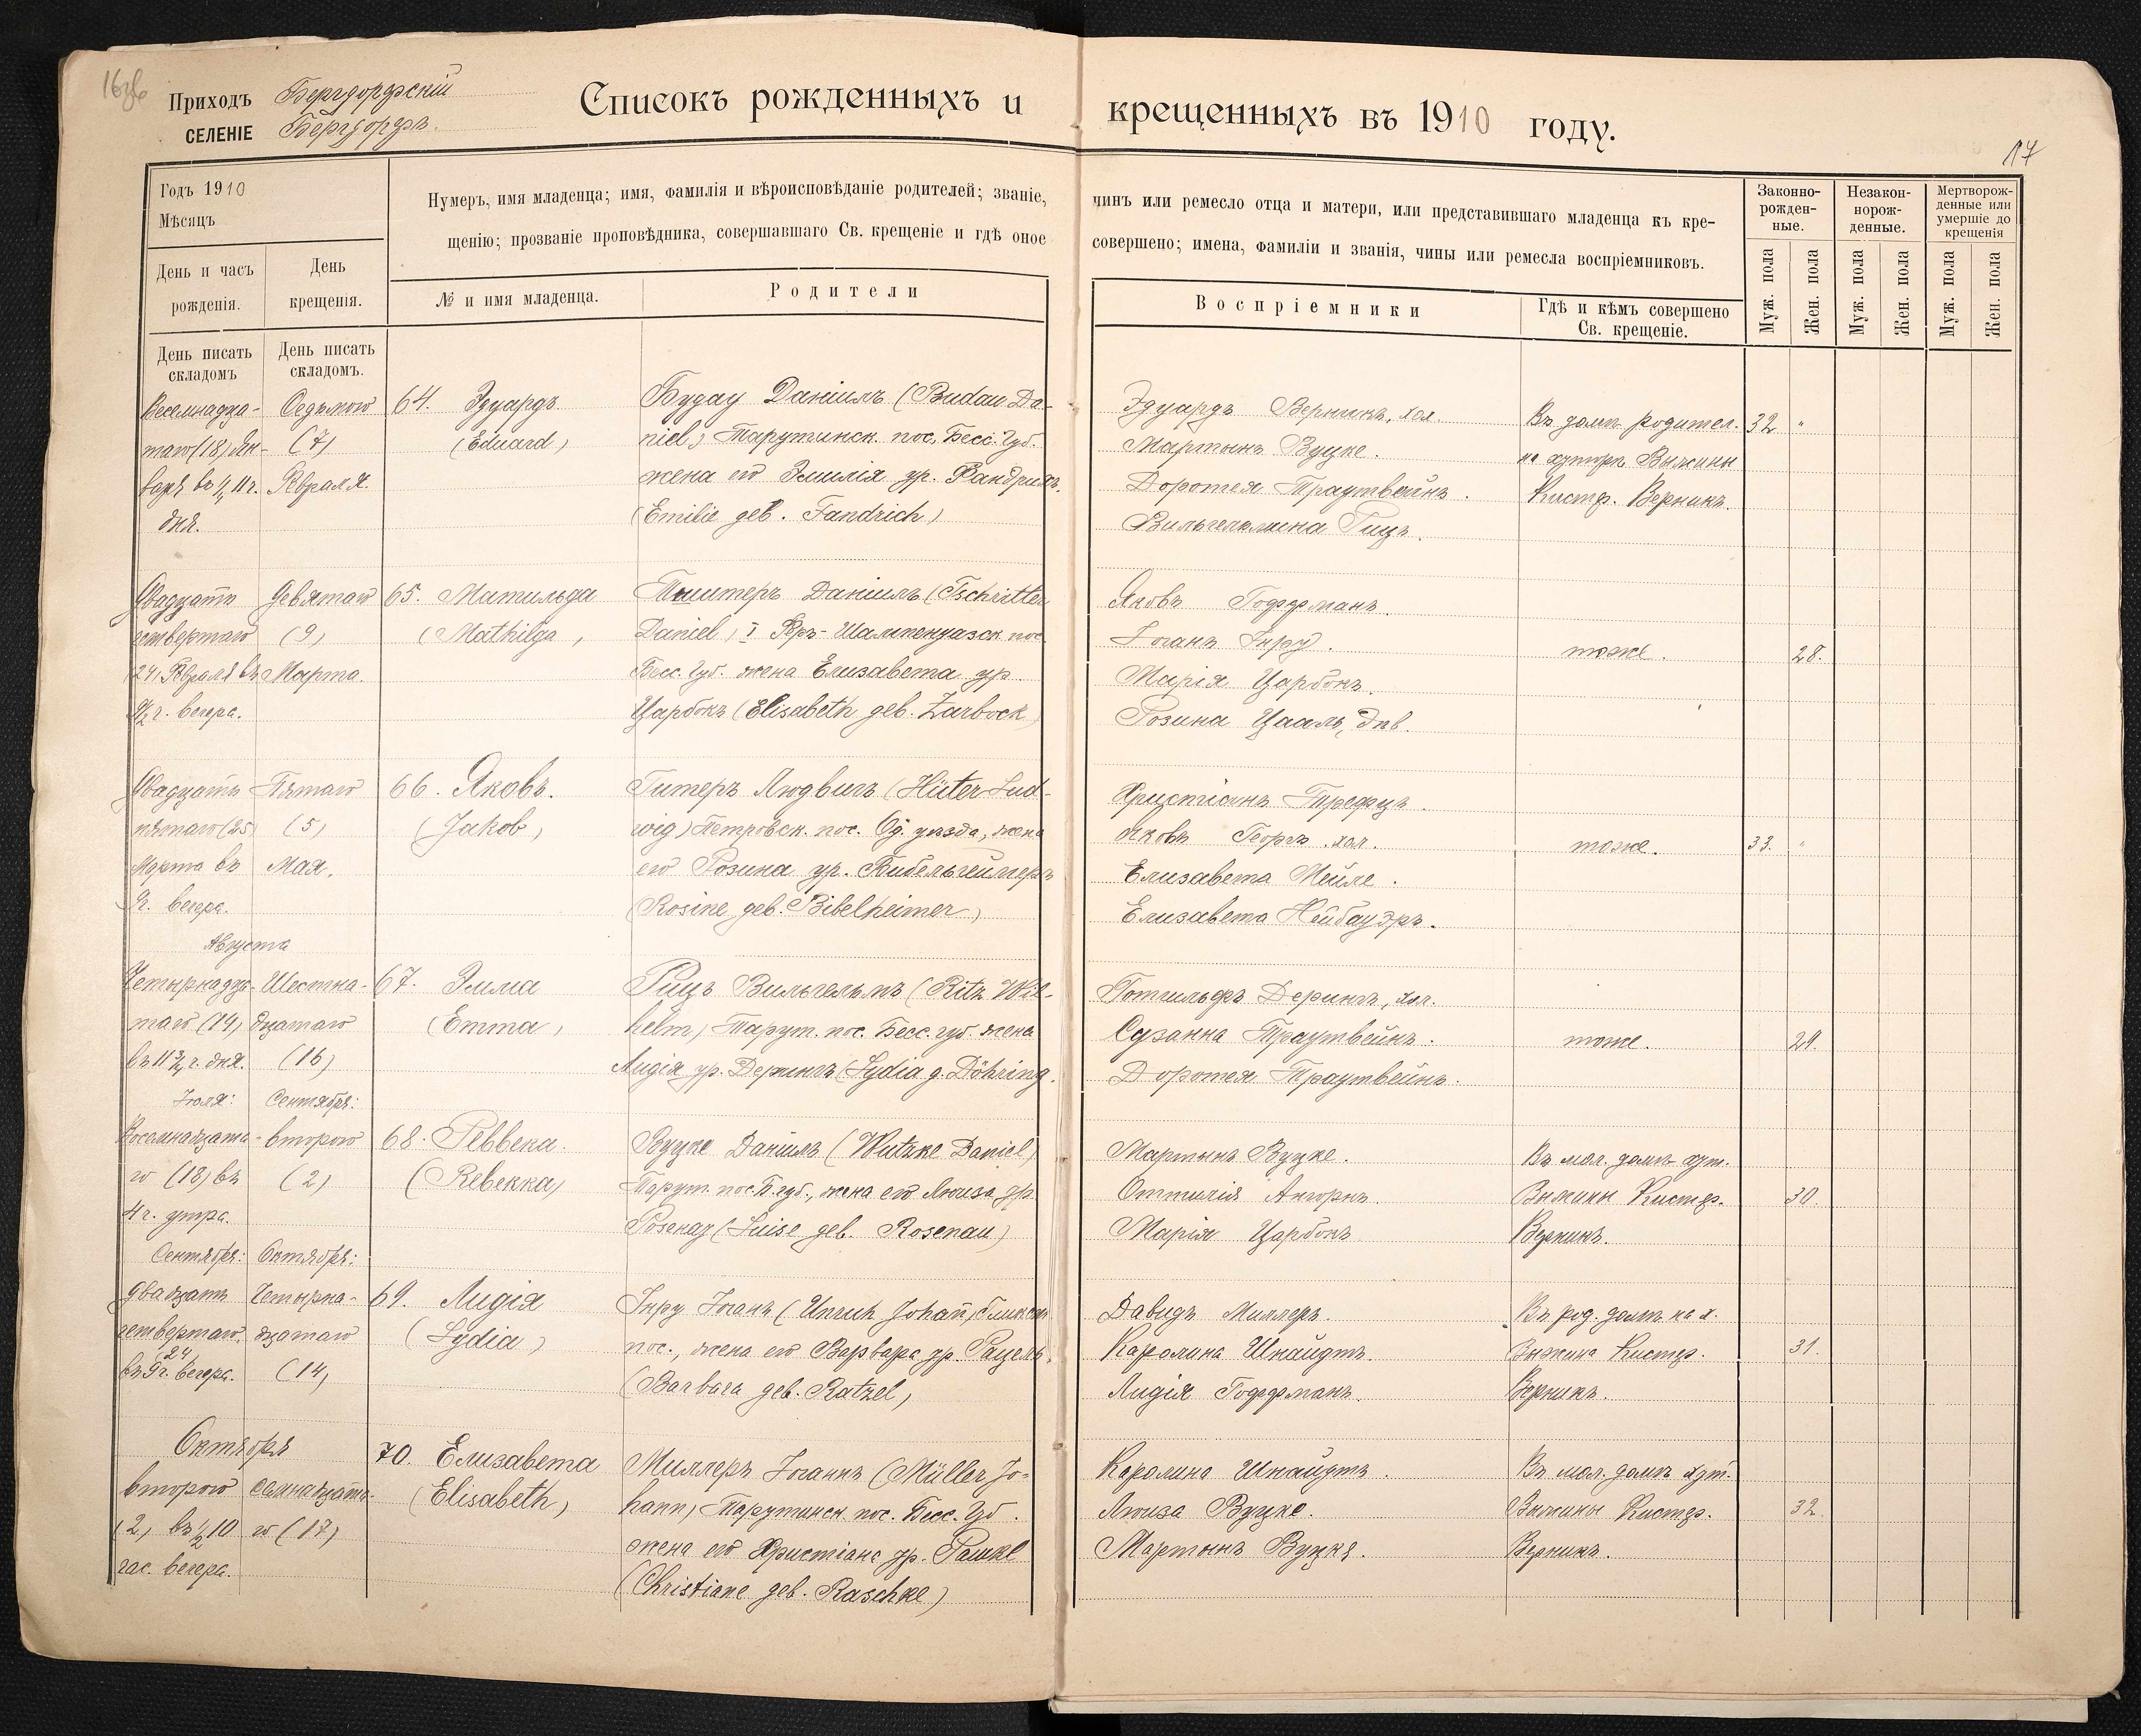 Приходъ Бергдорфскій
СЕЛЕНІЕ Бергдорфъ.
Списокъ рожденныхъ и крещенныхъ въ 1910 году.
17
Годъ 1910
Мѣсяцъ
День и часъ рожденія.
День крещенія.
Нумеръ, имя младенца; имя, фамилія и вѣроисповѣданіе родителей; званіе, чинъ или ремесло отца и матери, или представившаго младенца къ кре-
щенію; прозваніе проповѣдника, совершавшаго Св. крещеніе и гдѣ оное совершено; имена, фамиліи и званія, чины или ремесла воспріемниковъ.
№ и имя младенца.
Родители
Воспріемники
Гдѣ и кѣмъ совершено Св. крещеніе.
Законно-рожден-ные.
Незакон-норож-денные.
Мертворож-денные или умершіе до крещенія
Муж. пола
Жен. пола
Муж. пола
Жен. пола
Муж. пола
Жен. пола
День писать складомъ
День писать складомъ.
Восемнадца-
таго (18) Ян-
варя въ ½ 11 ч.
дня.
Седьмого
(7)
Февраля.
64. Эдуардъ
(Eduard)
Будау Даніилъ (Budau Da-
niel) Тарутинск. пос. Бесс. Губ.
жена его Эмилія ур. Фандрихъ.
(Emilie geb. Fandrich)
Эдуардъ Верникъ, хол.
Мартынъ Вуцке.
Доротея Траутвейнъ.
Вильгельмина Рицъ.
Въ домѣ родител.
на хуторѣ Выжины
Кистер. Верникъ.
32 "
Двадцать
четвертаго
(24) Февраля въ
ч. вечера.
Девятаго
(9)
Марта.
65. Матильда
(Mathilda)
Даніилъ (Tschritter
Daniel) I Фер-Шампенуазск. пос.
Бесс. Губ. жена Елизавета ур.
Царбокъ (Elisabeth geb. Zarbock)
Яковъ Гоффманъ.
Іоганъ Унру.
Марія Царбокъ.
Розина Цааль, дѣв.
тоже.
28.
Двадцать
пятаго (25)
Марта въ
ч. вечера.
Пятаго
(5)
Мая.
66. Яковъ.
(Jakob)
Гитеръ Людвигъ (Hüter Lud-
wig) Петровск. пос. Од. уѣзда, жена
его Розина ур. Бибельгеймеръ
(Rosine geb. Bibelheimer)
Христіанъ Трефцъ.
Яковъ Георгъ. хол.
Елизавета Мейле.
Елизавета Нейбауэръ.
тоже.
33. "
Августа
Четырнадца-
таго (14)
въ 11 ¾ ч. дня.
Шестна-
дцатаго
(16)
67. Эмма
(Emma)
Рицъ Вильгельмъ (Ritz Wil-
helm) Тарут. пос. Бесс. губ. жена
Лидія ур. Дерингъ (Lydia g. Döhring.
Готгильфъ Дерингъ, хол.
Сузанна Траутвейнъ.
Доротея Траутвейнъ.
тоже.
29.
Іюля:
Сентября:
Восемнадцата-
го (18) въ
4 ч. утра.
второго
(2)
68. Реввека.
(Rebekka)
Вуцке Даніилъ (Wutzke Daniel)
Тарут. пос. Б. губ., жена его Луиза ур.
Розенау (Luise geb. Rosenau)
Мартынъ Вуцке.
Оттилія Ангорнъ.
Марія Царбокъ
Въ мол. домѣ хут.
Выжины Кистер.
Верникъ.
30.
Сентября:
Октября:
двадцать
четвертаго.
(24)
въ 9 ч. вечера.
Четырна-
дцатаго
(14)
69. Лидія
(Lydia)
Унру Іоганъ (Unruh Johan)
пос., жена его Варвара ур. Рацель.
(Barbara geb. Ratzel)
Давидъ Миллеръ.
Каролина Шнайдтъ.
Лидія Гоффманъ.
Въ род. домѣ на х.
Выжина Кистер.
Верникъ.
31.
Октября
второго
(2) въ ½ 10
час. вечера.
семнадцата-
го (17)
70. Елизавета
(Elisabeth)
Миллеръ Іоганнъ (Müller Jo-
hann) Тарутинск. пос. Бесс. Губ.
жена его Христіане ур. Рашке
(Christiane geb. Raschke)
Каролина Шнайдтъ.
Луиза Вуцке.
Мартынъ Вуцке.
Въ мол. домѣ хут.
Выжины Кистер.
Верникъ.
32.